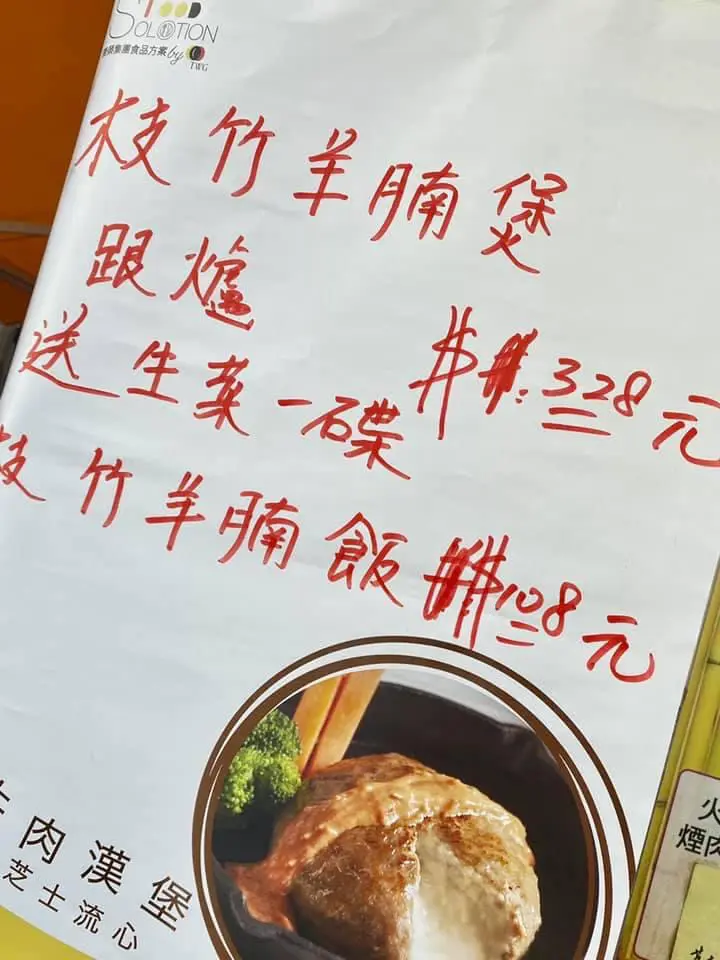 FOOD
SOLUTION
集團食品方案 by TWG
枝竹羊腩煲
跟爐
送生菜一碟 $328元
枝竹羊腩飯 $108元
牛肉漢堡
芝士流心
煙肉